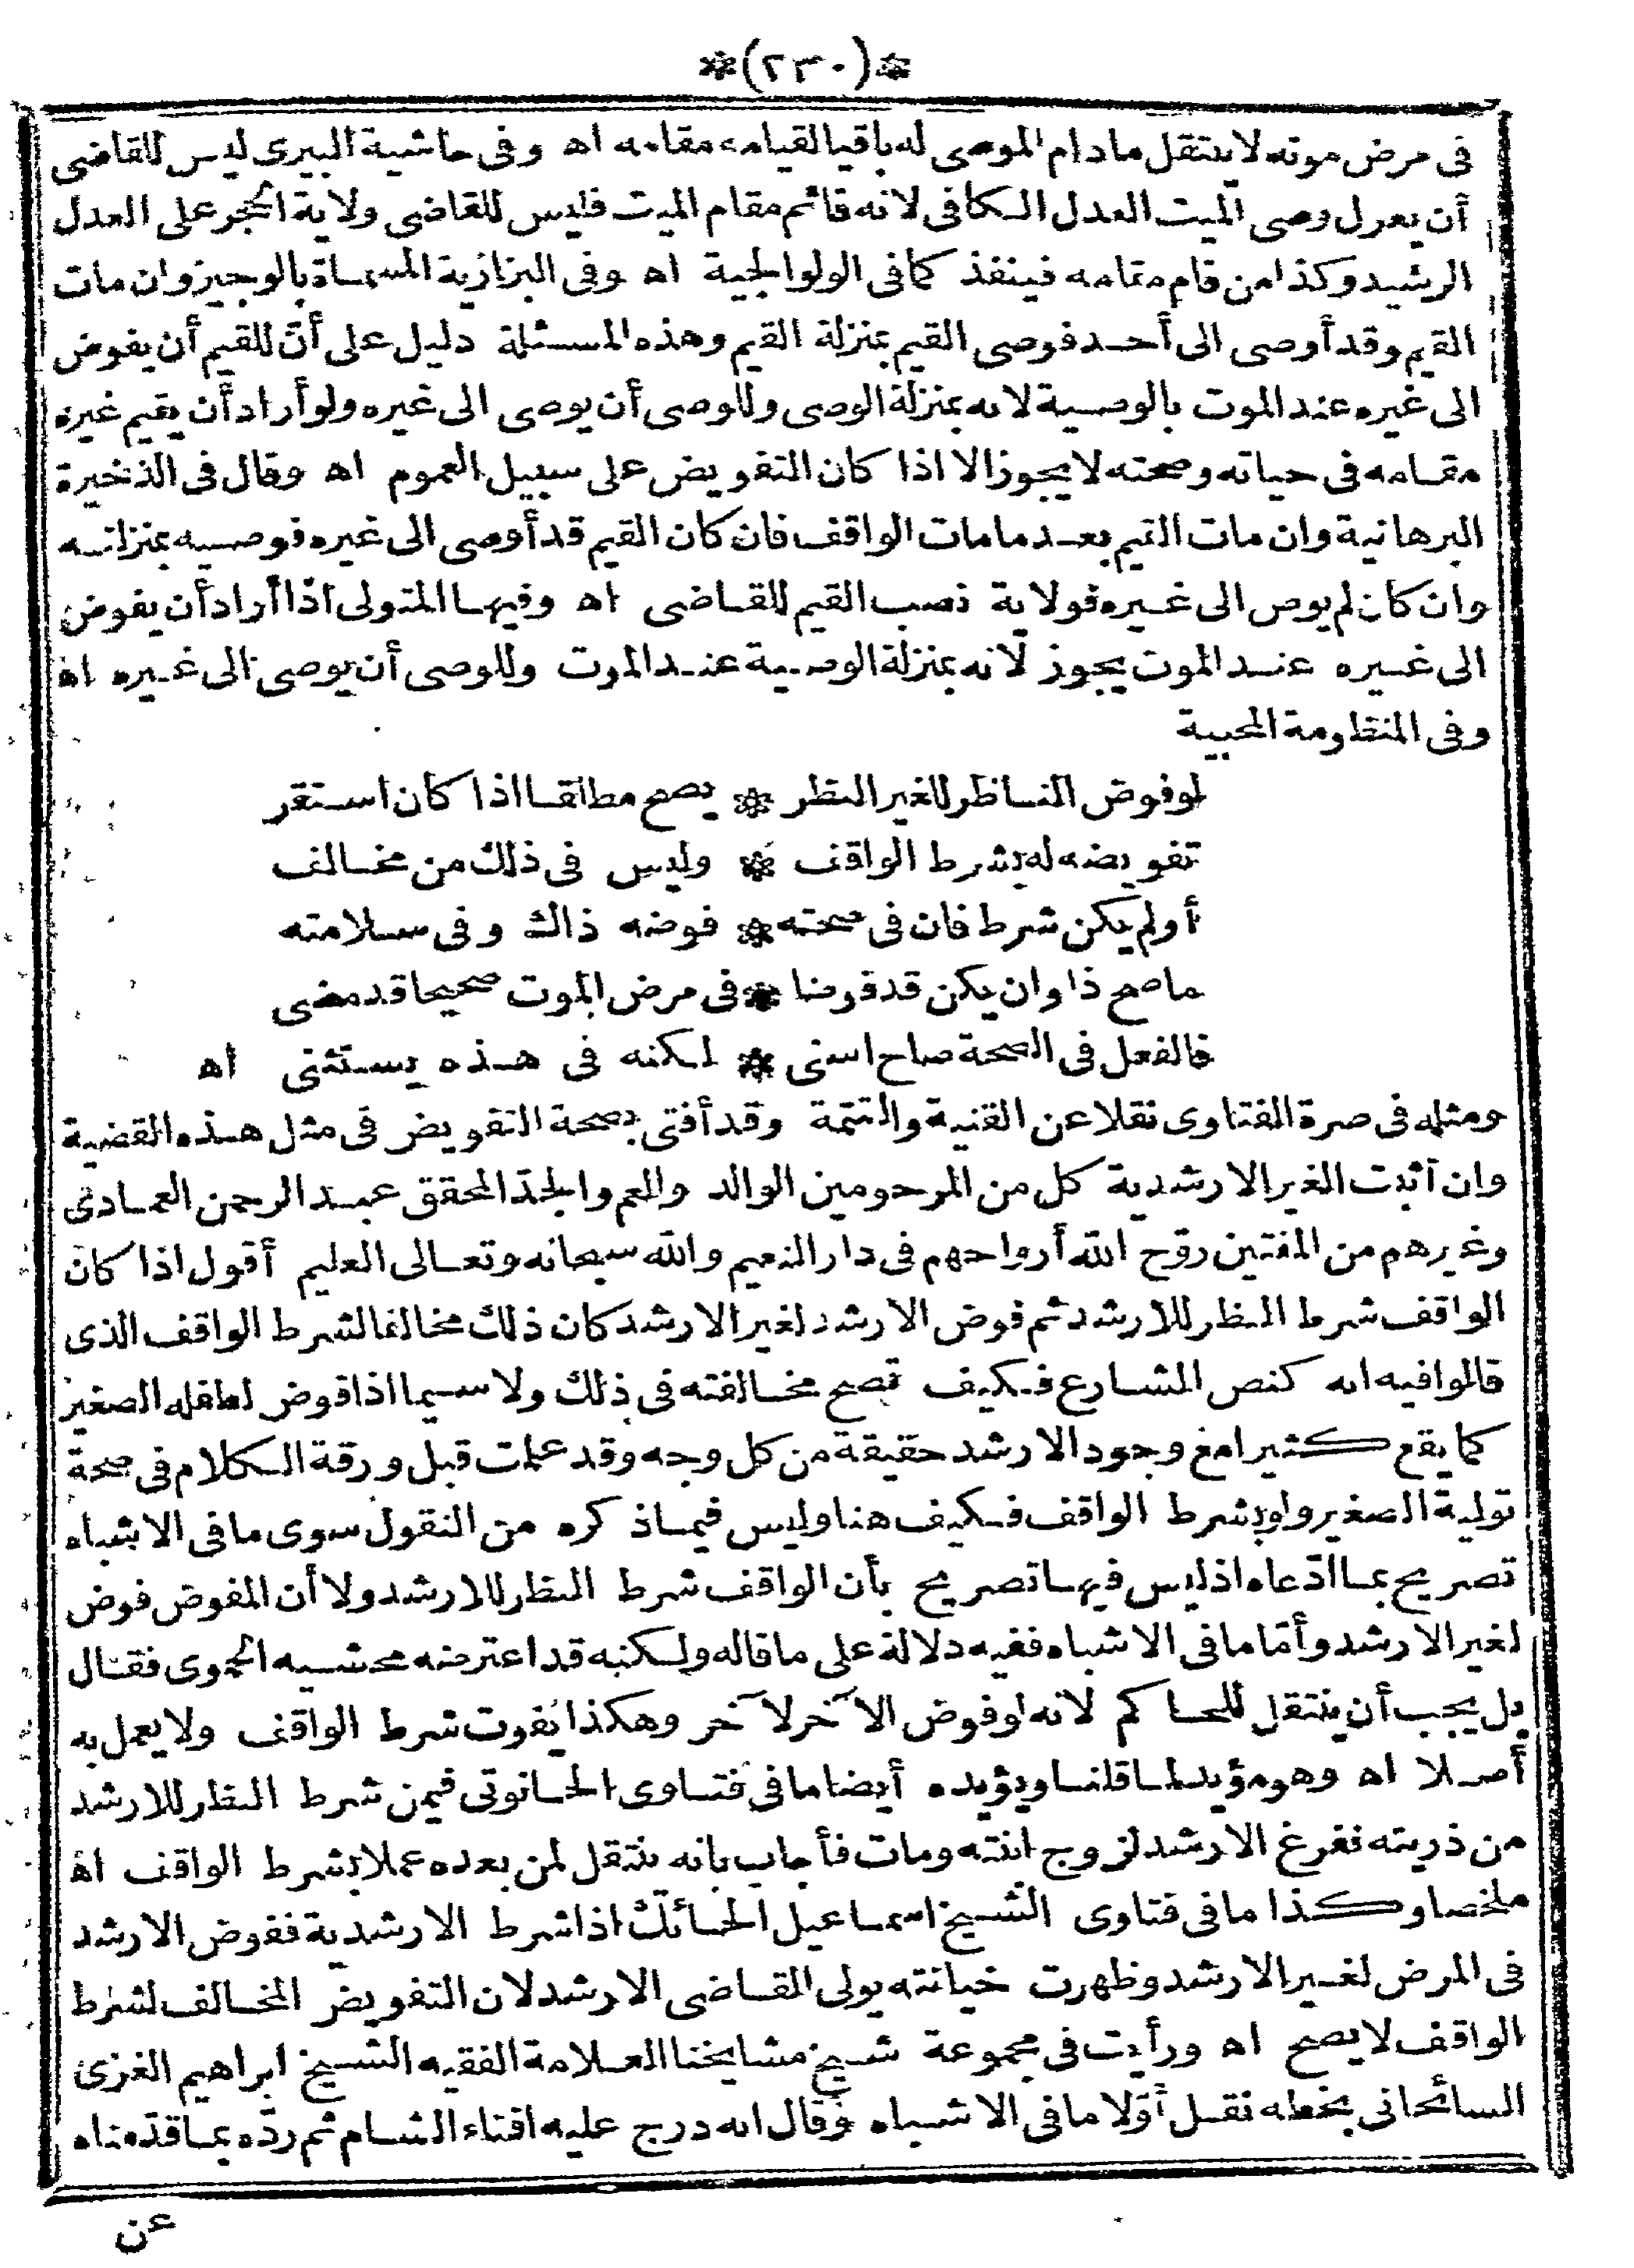 *(٢٣٠)*
فى مرض موته لا ينتقل مادام الموصى له باقيا لقيامه مقامه اه وفى حاشية البيرى ليس للقاضى
أن يعزل وصى الميت العدل الكافى لانه قائم مقام الميت فليس للقاضى ولاية الحجر على العدل
الرشيد وكذا من قام مقامه فينفذ كما فى الولوالجية اه وفى البزازية المسماة بالوجيز وان مات
القيم وقد أوصى الى أحد فوصى القيم بمنزلة القيم وهذه المسئلة دليل على أنّ للقيم أن يفوض
الى غيره عند الموت بالوصية لانه بمنزلة الوصى وللوصى أن يوصى الى غيره ولو أراد أن يقيم غيره
مقامه فى حياته وصحته لا يجوز الا اذا كان التفويض على سبيل العموم اه وقال فى الذخيرة
البرهانية وان مات القيم بعد مامات الواقف فان كان القيم قد أوصى الى غيره فوصيه بمنزلته
وان كان لم يوص الى غيره فولاية نصب القيم للقاضى اه وفيها المتولى اذا أراد أن يفوض
الى غيره عند الموت يجوز لانه بمنزلة الوصية عند الموت وللوصى أن يوصى الى غيره اه
وفى المنظومة المحبية
لو فوض الناظر للغير النظر * يصح مطلقا اذا كان استقر
تفويضه له بشرط الواقف * وليس فى ذلك من مخالف
أو لم يكن شرط فان فى صحته * فوضه ذاك وفى سلامته
ما صح ذا وان يكن قد فوضا * فى مرض الموت صحيحا قد مضى
فالفعل فى الصحة صاح اسنى * لكنه فى هذه يستثنى اه
ومثله فى صرة الفتاوى نقلا عن القنية والتتمة وقد أفتى بصحة التفويض فى مثل هذه القضية
وان أثبت الغير الارشدية كل من المرحومين الوالد والعم والجدّ المحقق عبد الرحمن العمادى
وغيرهم من المفتين روّح الله أرواحهم فى دار النعيم والله سبحانه وتعالى العليم أقول اذا كان
الواقف شرط النظر للارشد ثم فوض الارشد لغير الارشد كان ذلك مخالفا لشرط الواقف الذى
قالوا فيه انه كنص الشارع فكيف تصح مخالفته فى ذلك ولا سيما اذا فوض لطفله الصغير
كما يقع كثيرا مع وجود الارشد حقيقة من كل وجه وقد علمت قبل ورقة الكلام فى صحة
تولية الصغير ولو بشرط الواقف فكيف هنا وليس فيما ذكره من النقول سوى ما فى الاشباه
تصريح بما ادّعاه اذ ليس فيها تصريح بأن الواقف شرط النظر للارشد ولا أن المفوض فوض
لغير الارشد وأمّا ما فى الاشباه ففيه دلالة على ما قاله ولكنه قد اعترضه محشيه الحموى فقال
بل يجب أن ينتقل للحاكم لانه لو فوض الآخر لآخر وهكذا يفوت شرط الواقف ولا يعمل به
أصلا اه وهو مؤيد لما قلنا ويؤيده أيضا ما فى فتاوى الحانوتى فيمن شرط النظر للارشد
من ذريته ففرغ الارشد لزوج ابنته ومات فأجاب بانه ينتقل لمن بعده عملا بشرط الواقف اه
ملخصا وكذا ما فى فتاوى الشيخ اسماعيل الحائك اذا شرط الارشدية ففوض الارشد
فى المرض لغير الارشد وظهرت خيانته يولى القاضى الارشد لان التفويض المخالف لشرط
الواقف لا يصح اه ورأيت فى مجموعة شيخ مشايخنا العلامة الفقيه الشيخ ابراهيم الغزى
السائحانى بخطه نقل أوّلا ما فى الاشباه وقال انه درج عليه افتاء الشام ثم ردّه بما قدّمناه
عن